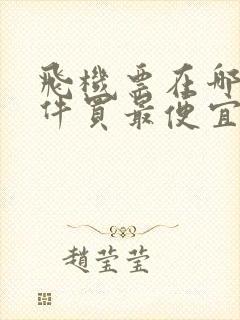 飛機票在哪
件買最便宜
趙莹莹